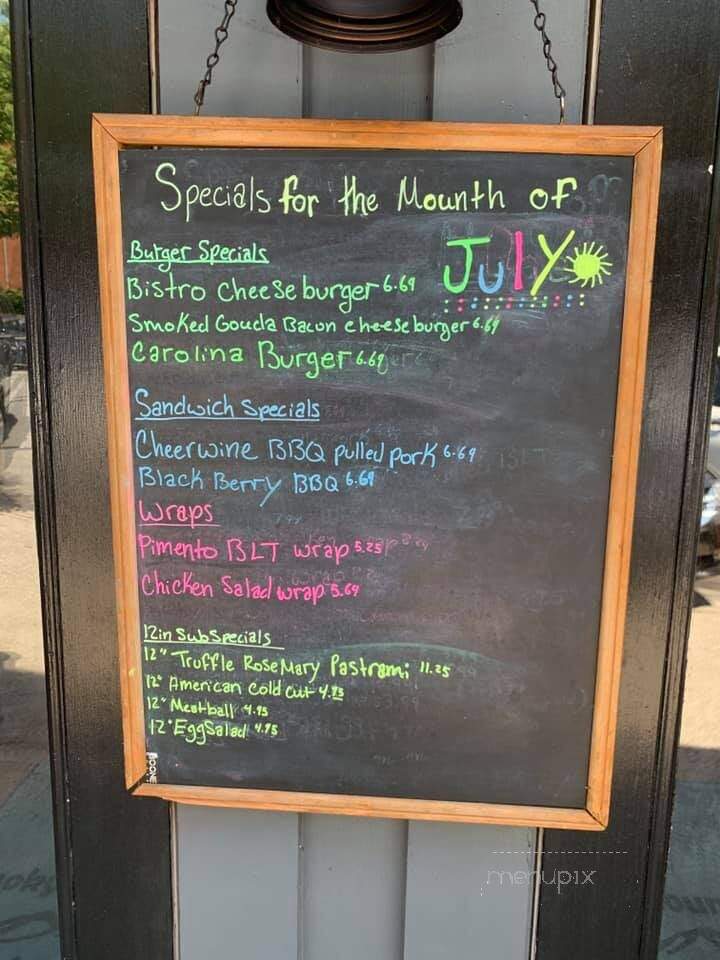 Specials for the Mounth of
July
Burger Specials
Bistro Cheeseburger 6.69
Smoked Gouda Bacon cheeseburger 6.69
Carolina Burger 6.69
Sandwich Specials
Cheerwine BBQ pulled pork 6.69
Black Berry BBQ 6.69
Wraps
Pimento BLT wrap 5.25
Chicken Salad wrap 5.69
12in Sub Specials
12" Truffle RoseMary Pastrami 11.25
12" American cold cut 4.95
12" Meatball 4.95
12" Egg Salad 4.95
BOONE
menupix